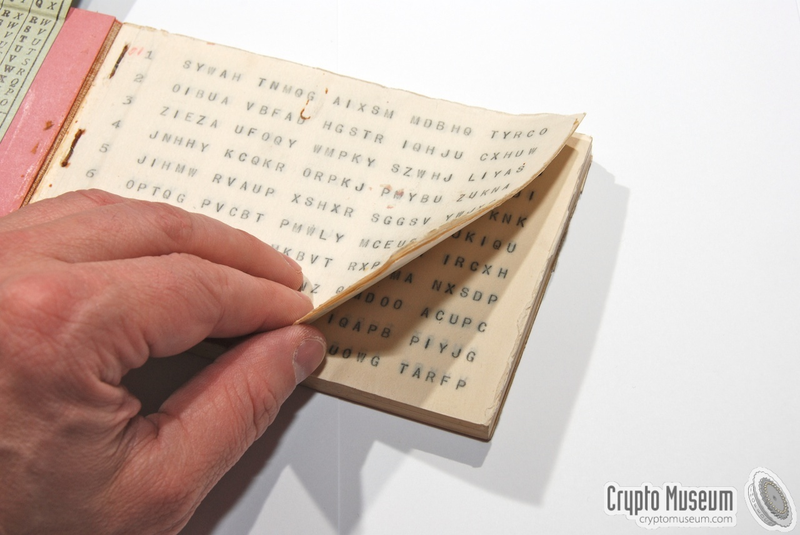 1 SYWAH TNMQG AIXSM MDBHQ TYRCO
2 OIBUA VBFAU HGSTR IQHJU CXHUW
3 ZIEZA UFOQY WMPKY SZWHJ LIYAS
4 JNHHY KCQKR ORPKJ PMYBU ZUKNA
5 JIHMW RVAUP XSHXR SGGSV
6 OPTQG PVCBT PMWLY MCEUS
KBVT RXP
KNK
KIQU
IRCXH
MA NXSDP
DOO ACUPC
IQAPB PIYJG
UOWG TARFP
Crypto Museum
cryptomuseum.com